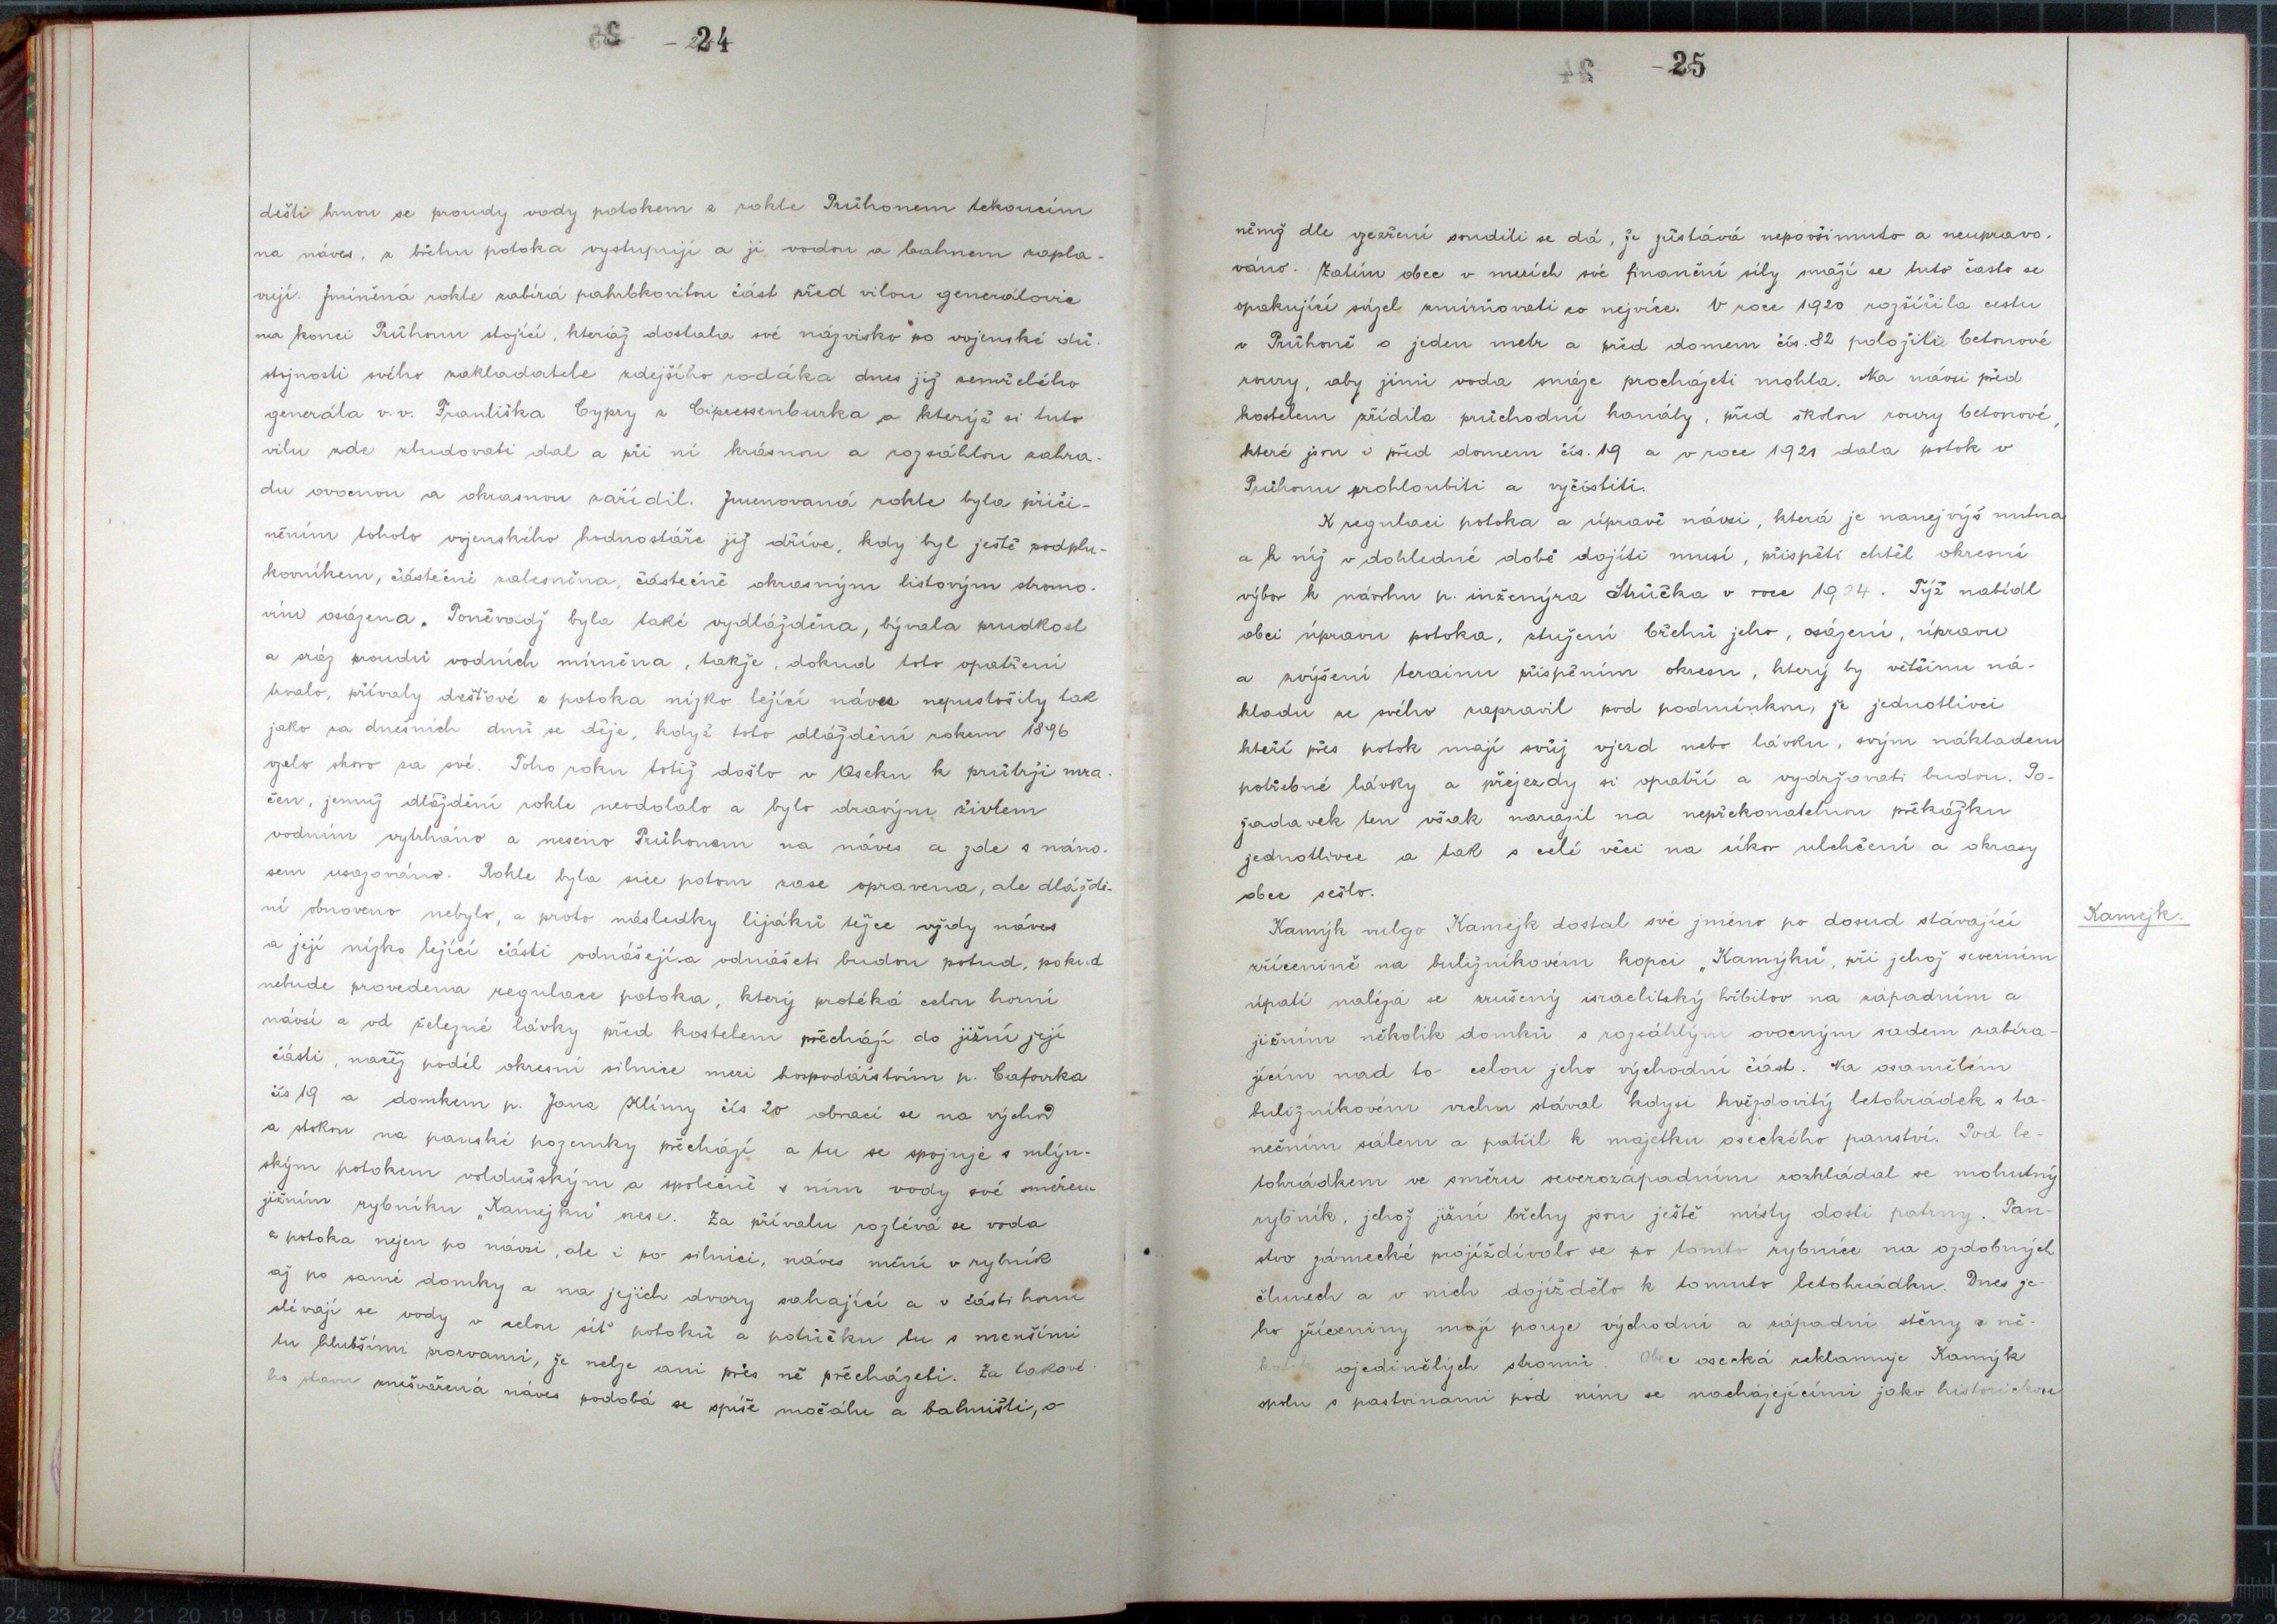 24
dešti hrnou se proudy vody potokem z rokle Průhonem tekoucím
na náves, z břehu potoka vystupují a ji vodou a bahnem zapla-
vují. Zmíněná rokle zabírá pahrbkovitou část před vilou generálovic
na konci Průhonu stojící, kteráž dostala své názvisko po vojenské dů-
stojnosti svého zakladatele zdejšího rodáka dnes již zemřelého
generála v. v. Františka Cypry z Cipressenburka a kterýž si tuto
vilu zde zbudovati dal a při ní krásnou a rozsáhlou zahra-
du ovocnou a okrasnou zařídil. Jmenovaná rokle byla přiči-
něním tohoto vojenského hodnostáře již dříve, kdy byl ještě podplu-
kovníkem, částečně zalesněna, částečně okrasným listovým stromo-
vím osázena. Poněvadž byla také vydlážděna, bývala prudkost
a sráz proudů vodních mírněna, takže, dokud toto opatření
trvalo, přívaly dešťové z potoka nízko ležící náves nepustošily tak
jako za dnešních dnů se děje, když toto dláždění rokem 1896
vzalo skoro za své. Toho roku totiž došlo v Oseku k průtrži mra-
čen, jemuž dláždění rokle neodolalo a bylo dravým živlem
vodním vytrháno a neseno Průhonem na náves a zde s náno-
sem usazováno. Rokle byla sice potom zase opravena, ale dláždě-
ní obnoveno nebylo, a proto následky lijáků těžce vždy náves
a její nízko ležící části odnášejí a odnášeti budou potud, pokud
nebude provedena regulace potoka, který protéká celou horní
návsí a od železné lávky před kostelem přechází do jižní její
části, načež podél okresní silnice mezi hospodářstvím p. Cafourka
čís 19 a domkem p. Jana Klímy čís 20 obrací se na východ
a stokou na panské pozemky přechází a tu se spojuje s mlýn-
ským potokem voldušským a společně s ním vody své směrem
jižním rybníku „Kamejku" nese. Za přívalu rozlévá se voda
z potoka nejen po návsi, ale i po silnici, náves mění v rybník
až po samé domky a na jejich dvory sahající a v části horní
slévají se vody v celou síť potoků a potůčků tu s menšími
tu hlubšími prorvami, že nelze ani přes ně přecházeti. Za takové-
ho stavu znešvařená náves podobá se spíše močálu a bahništi, o
25
němž dle vzezření souditi se dá, že zůstává nepovšimnuto a neupravo-
váno. Zatím obec v mezích své finanční síly snaží se tuto často se
opakující svízel zmírňovati co nejvíce. V roce 1920 rozšířila cestu
v Průhoně o jeden metr a před domem čís. 82 položila betonové
roury, aby jimi voda snáze procházeti mohla. Na návsi před
kostelem zřídila průchodní kanály, před školou roury betonové,
které jsou i před domem čís. 19 a v roce 1921 dala potok v
Průhonu prohloubiti a vyčistiti.
K regulaci potoka a úpravě návsi, která je nanejvýš nutna
a k níž v dohledné době dojíti musí, přispěti chtěl okresní
výbor k návrhu p. inženýra Strůčka v roce 1924. Týž nabídl
obci úpravu potoka, ztužení břehů jeho, osázení, úpravu
a zvýšení terainu přispěním okresu, který by většinu ná-
kladu ze svého zapravil pod podmínkou, že jednotlivci
kteří přes potok mají svůj vjezd nebo lávku, svým nákladem
potřebné lávky a přejezdy si opatří a vydržovati budou. Po-
žadavek ten však narazil na nepřekonatelnou překážku
jednotlivce a tak s celé věci na úkor ulehčení a okrasy
obce sešlo.
Kamejk.
Kamýk vulgo Kamejk dostal své jméno po dosud stávající
zřícenině na buližníkovém kopci „Kamýku", při jehož severním
úpatí nalézá se zrušený israelitský hřbitov na západním a
jižním několik domků s rozsáhlým ovocným sadem zabíra-
jícím nad to celou jeho východní část. Na osamělém
buližníkovém vrchu stával kdysi hvězdovitý letohrádek s ta-
nečním sálem a patřil k majetku oseckého panství. Pod le-
tohrádkem ve směru severozápadním rozkládal se mohutný
rybník, jehož jižní břehy jsou ještě místy dosti patrny. Pan-
stvo zámecké projíždívalo se po tomto rybníce na ozdobných
člunech a v nich dojíždělo k tomuto letohrádku. Dnes je-
ho zříceniny mají pouze východní a západní stěny a ně-
kolik ojedinělých stromů. Obec osecká reklamuje Kamýk
spolu s pastvinami pod ním se nacházejícími jako historickou